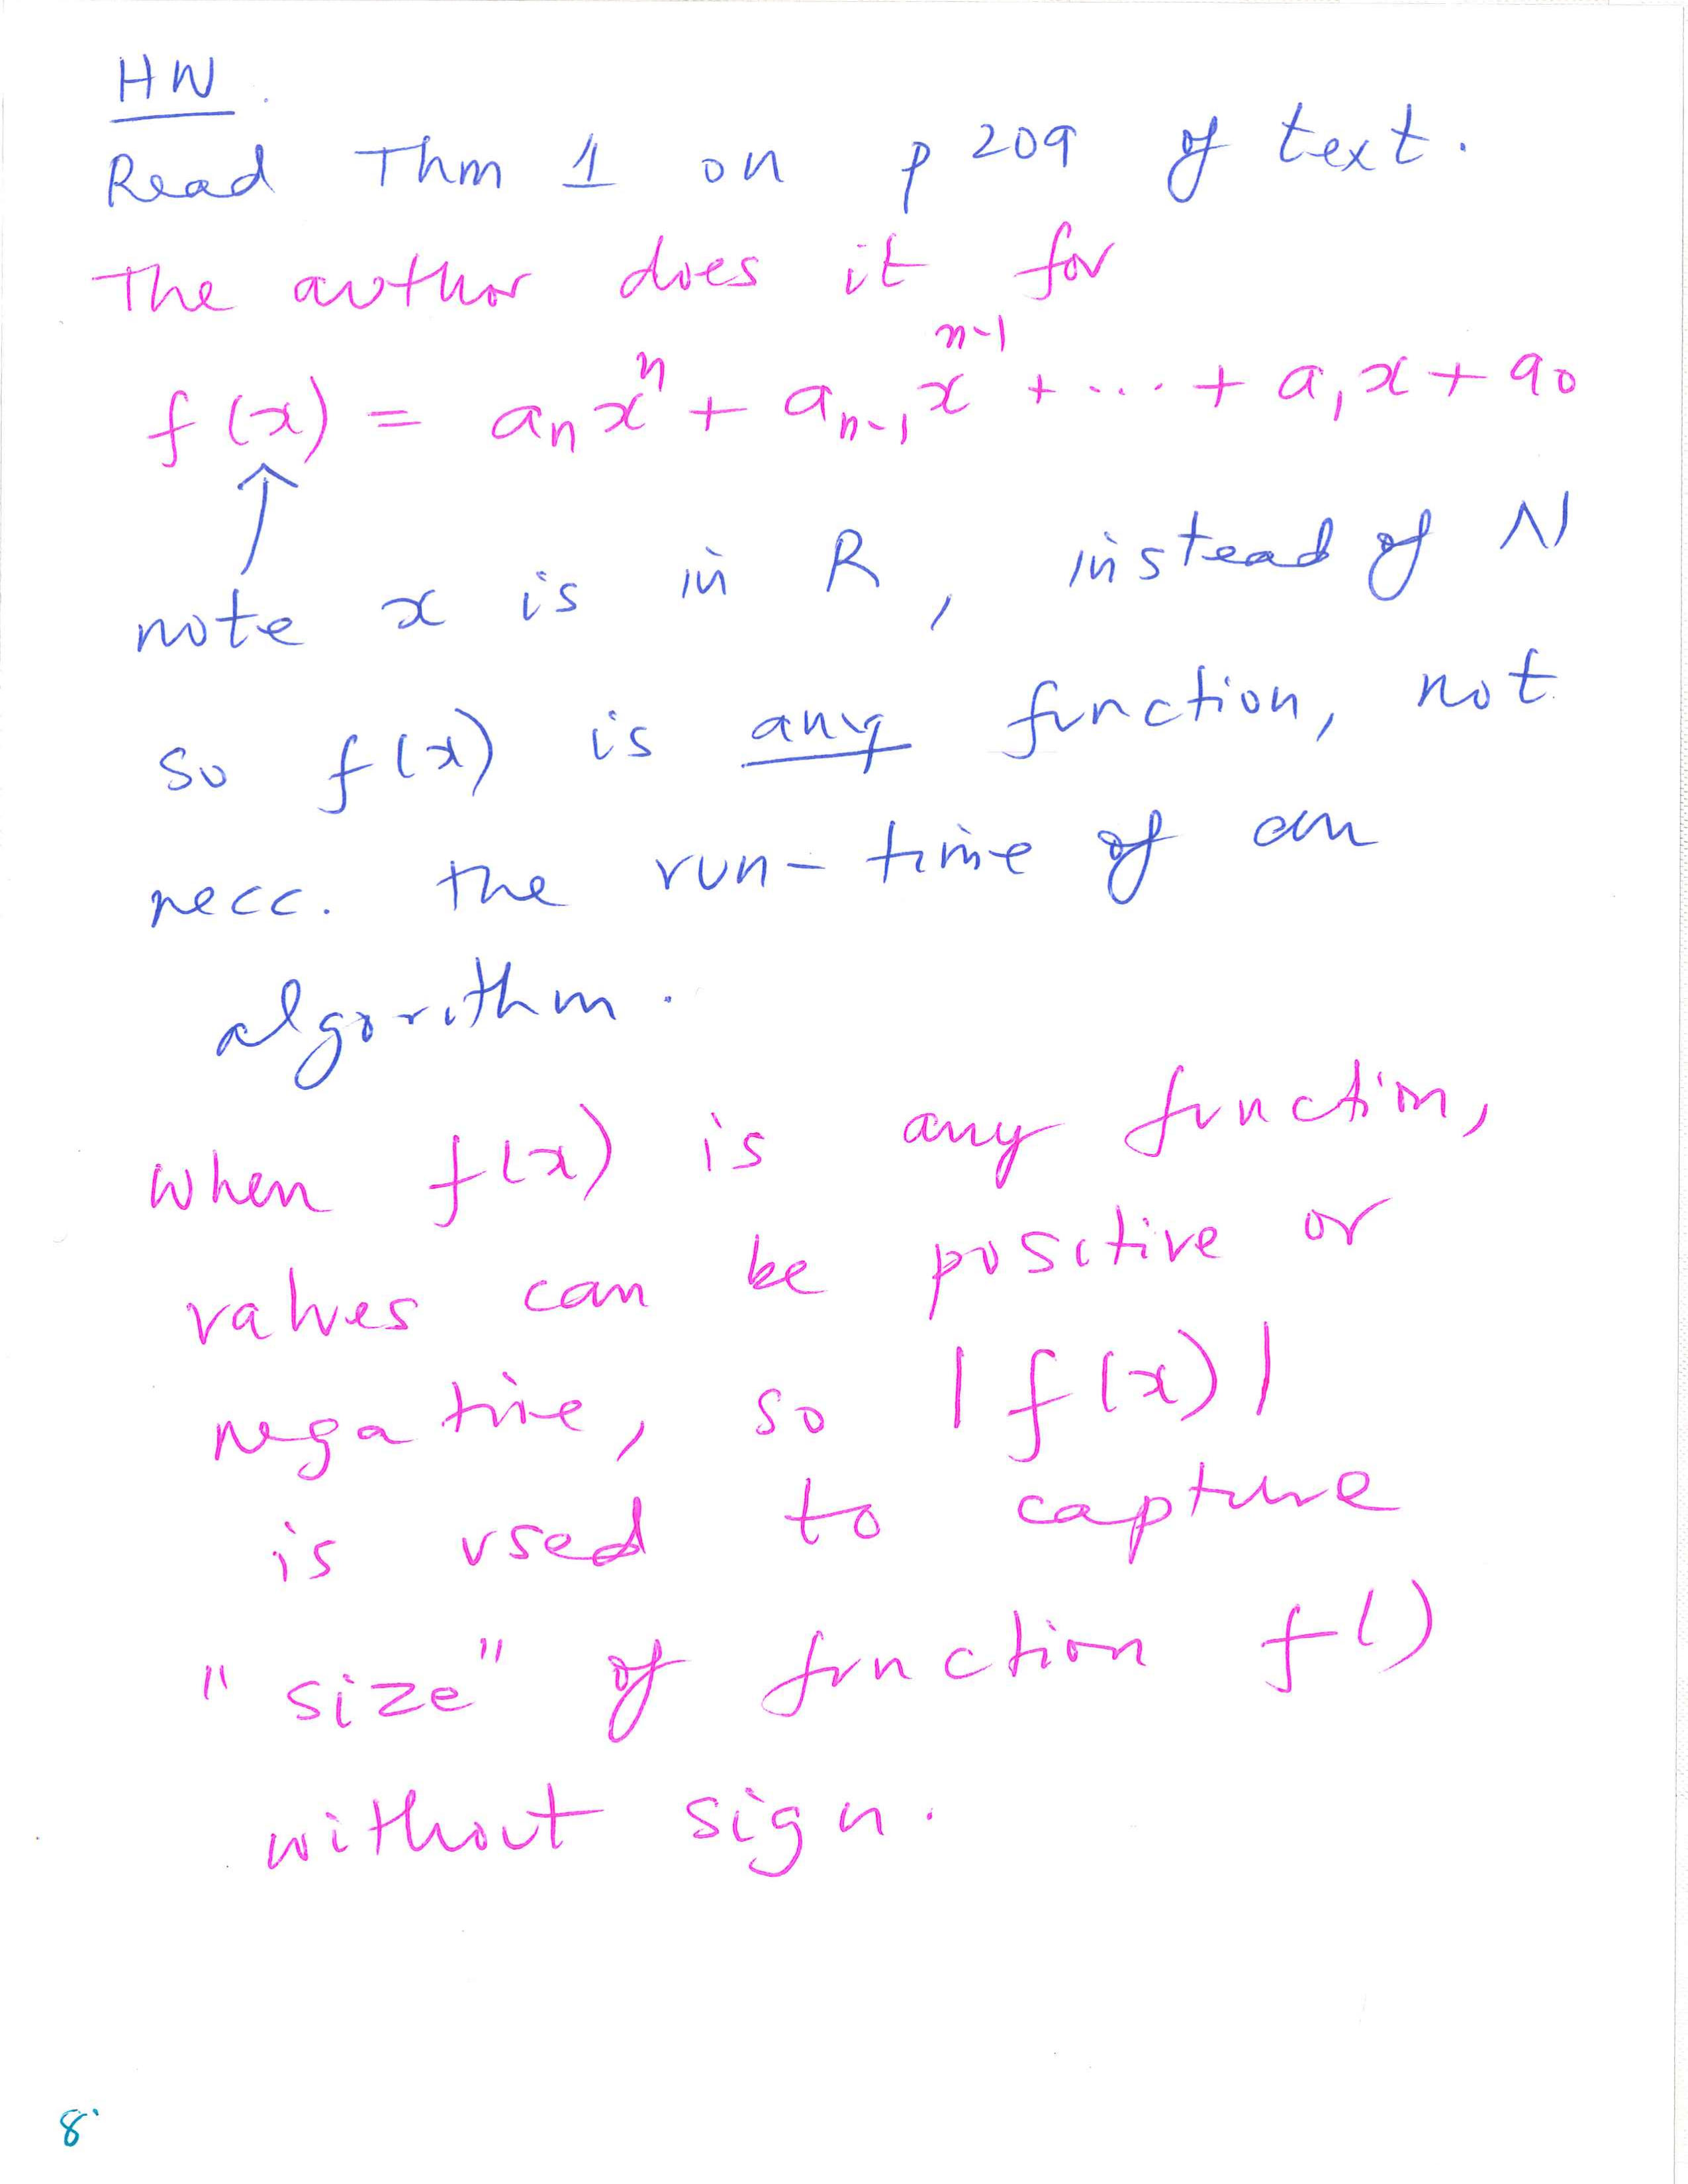 HW.
Read Thm 1 on p 209 of text.
The author does it for
f(x) = aₙxⁿ + aₙ₋₁xⁿ⁻¹ + ... + a₁x + a₀
note x is in R, instead of N
so f(x) is any function, not
necc. the run-time of an
algorithm.
When f(x) is any function,
values can be positive or
negative, so |f(x)|
is used to capture
"size" of function f()
without sign.
8